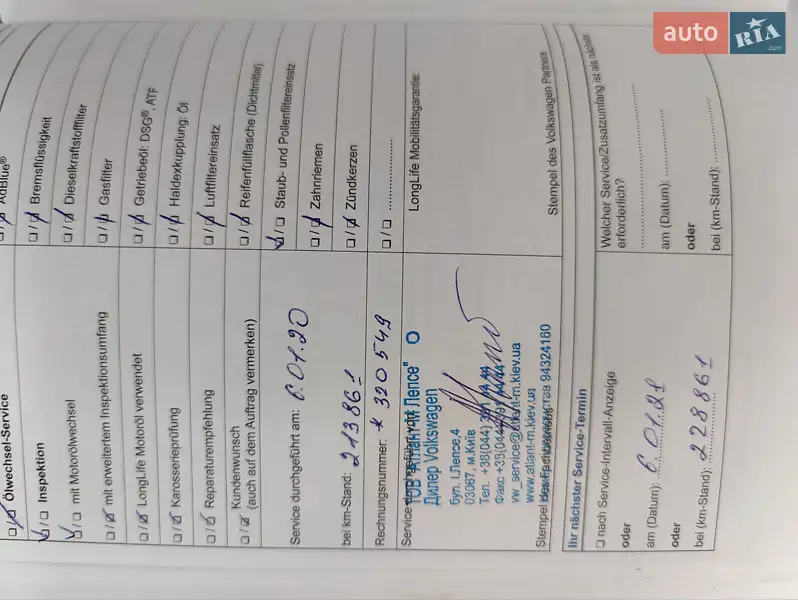 auto RIA.com
Ölwechsel-Service
Inspektion
mit Motorölwechsel
mit erweitertem Inspektionsumfang
LongLife Motoröl verwendet
Karosserieprüfung
Reparaturempfehlung
Kundenwunsch
(auch auf dem Auftrag vermerken)
AdBlue®
Bremsflüssigkeit
Dieselkraftstofffilter
Gasfilter
Getriebeöl: DSG®, ATF
Haldexkupplung: Öl
Luftfiltereinsatz
Reifenfüllflasche (Dichtmittel)
Staub- und Pollenfiltereinsatz
Zahnriemen
Zündkerzen
Service durchgeführt am: 6.01.20
bei km-Stand: 213861
Rechnungsnummer: * 320549
Service durchgeführt
ТОВ "Атлант-М Лепсе"
Дилер Volkswagen
бул. І.Лепсе,4
03067, м.Київ
Тел. +38(044)
Факс +38(044)
vw_service@atlant-m.kiev.ua
www.atlant-m.kiev.ua
94324160
Stempel des Fachbetriebs
LongLife Mobilitätsgarantie:
Stempel des Volkswagen Partners
Ihr nächster Service-Termin
nach Service-Intervall-Anzeige
oder
am (Datum): 6.01.21
oder
bei (km-Stand): 228861
Welcher Service/Zusatzumfang ist als nächster
erforderlich?
am (Datum):
oder
bei (km-Stand):